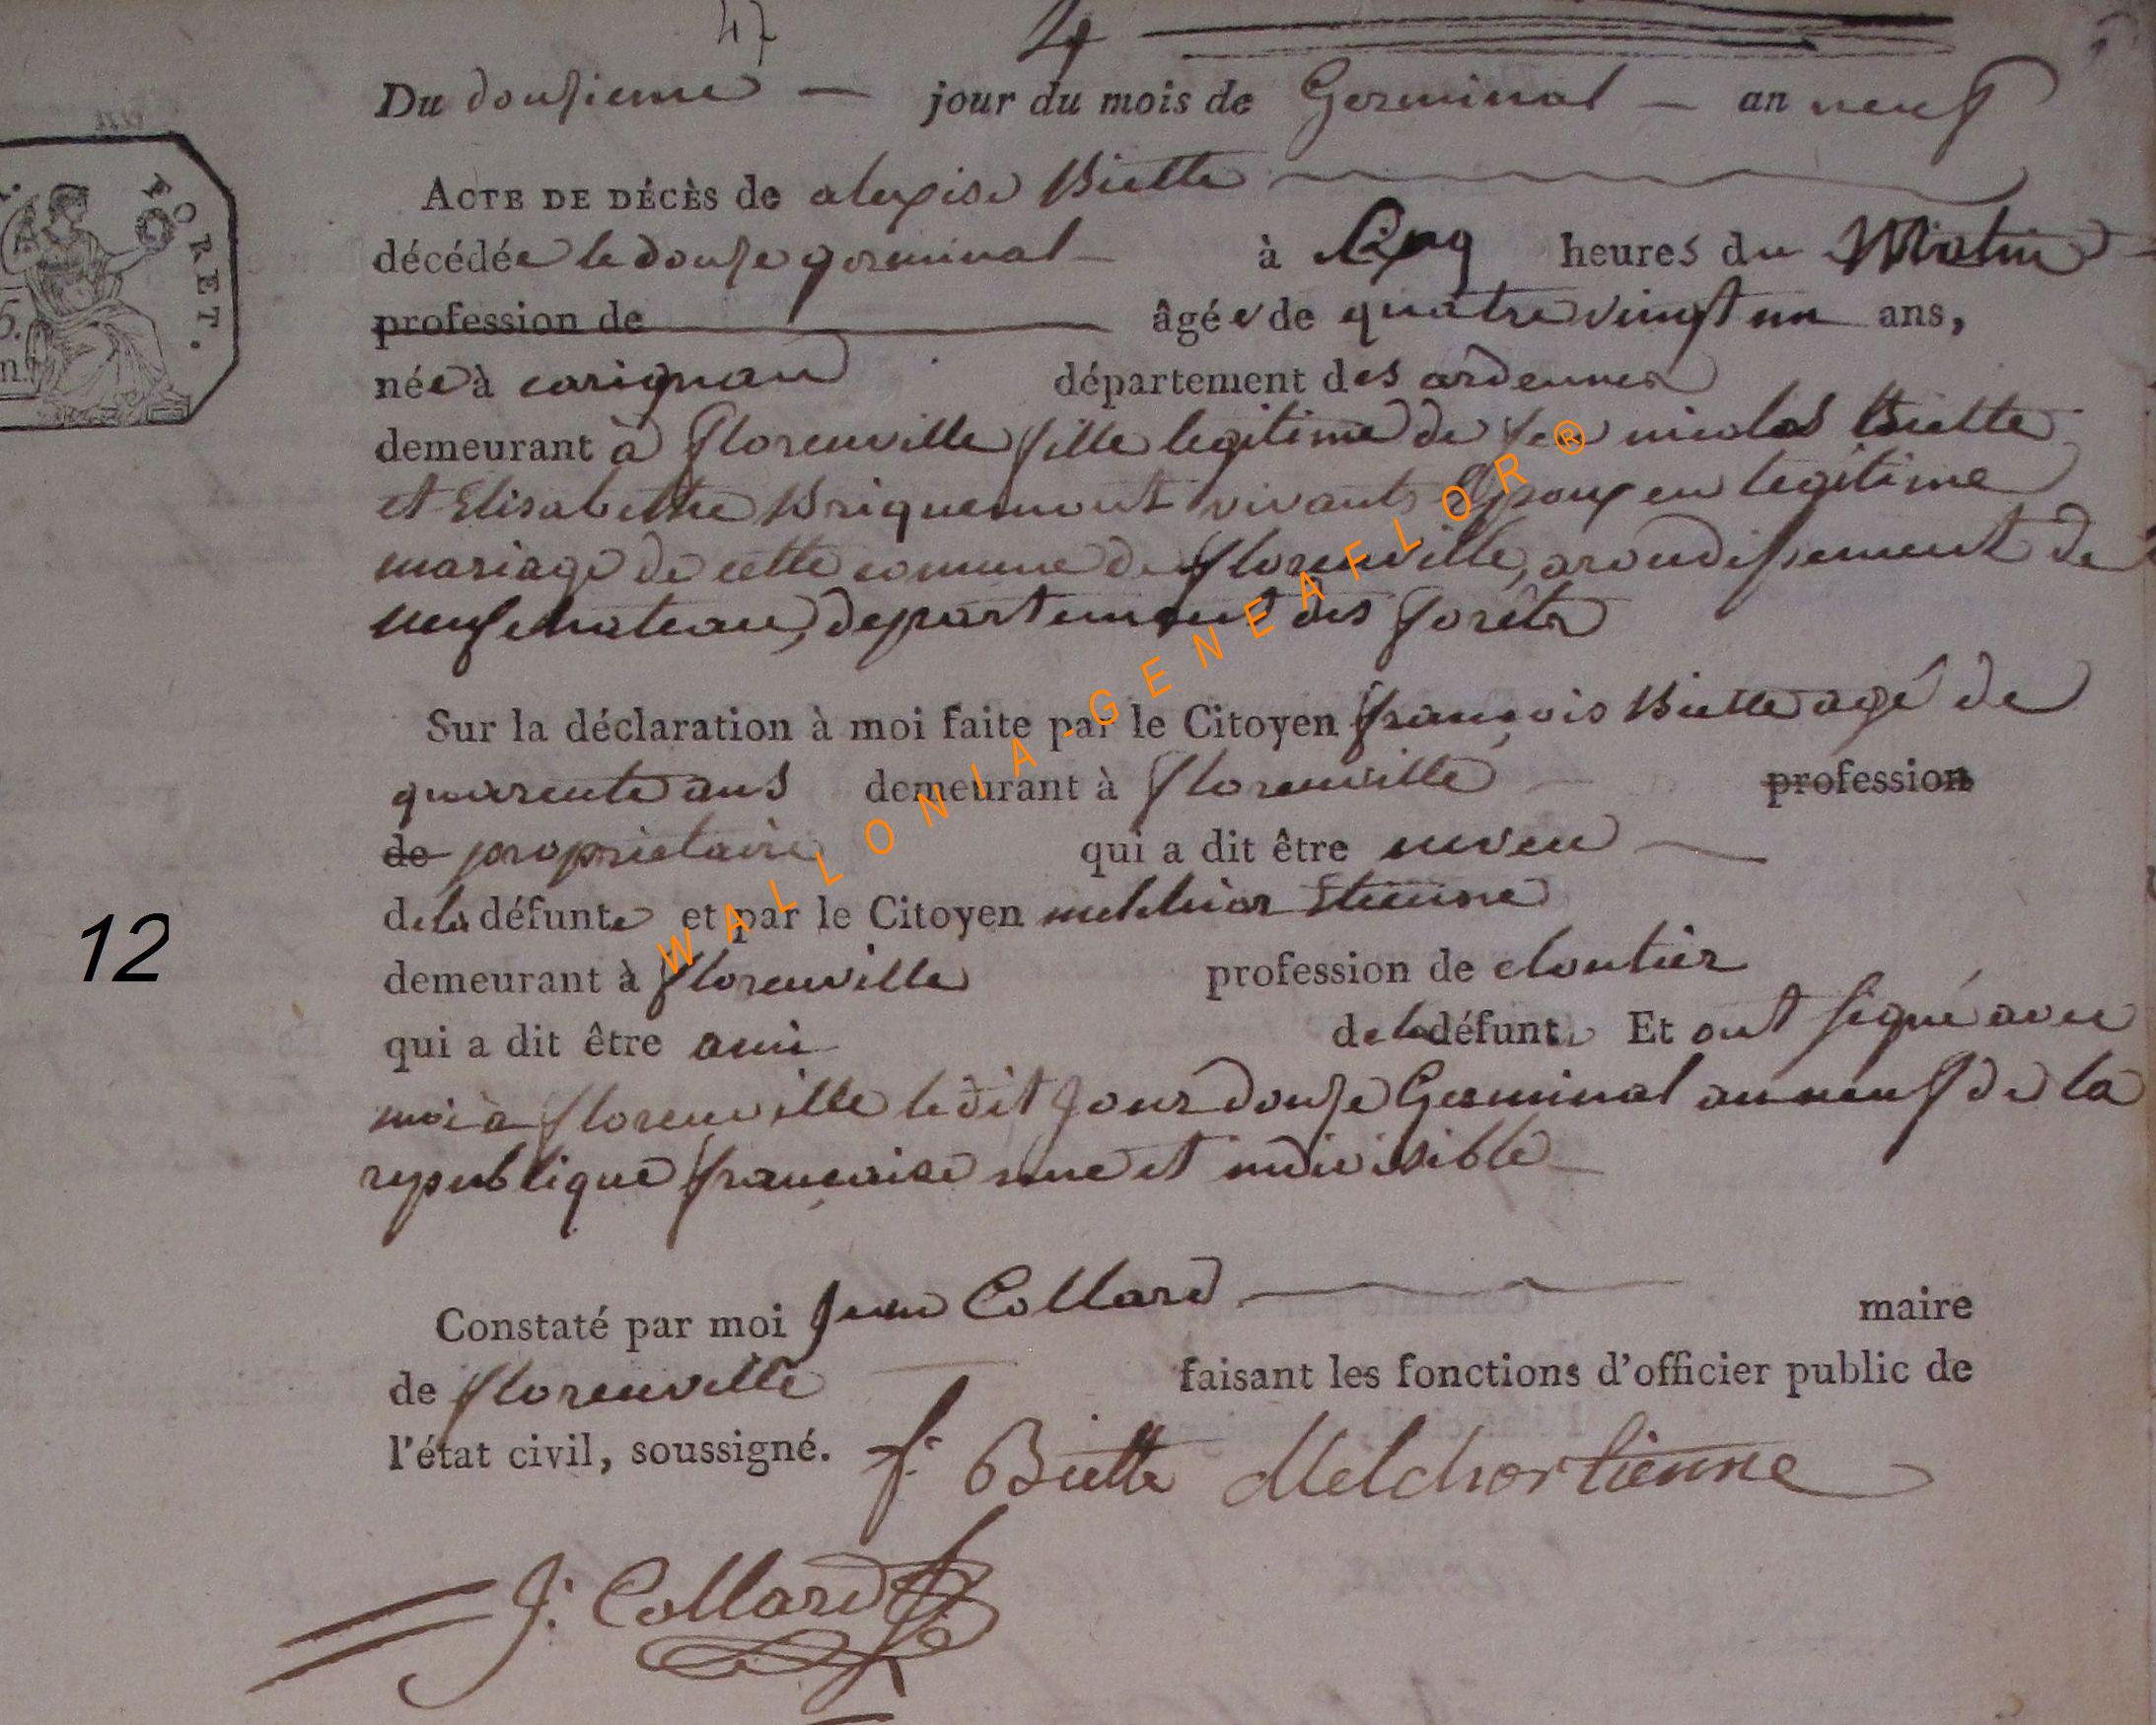 47 4
Du dousieme jour du mois de Germinal an neuf
FORET.
ACTE DE DÉCÈS de alexise Biette
décédée le douse germinal à cinq heures du Matin
profession de âgée de quatre vingt un ans,
née à carignan département des ardennes
demeurant à florenville fille legitime de feu nicolas Biette
et Elisabethe Briquemont vivants Epoux en legitime
mariage de cette comune de florenville, arondissement de
neufchateau, departement des forêts
Sur la déclaration à moi faite par le Citoyen françois Biette agé de
quarente ans demeurant à florenville profession
de proprietaire qui a dit être neveu
de la défunte et par le Citoyen melchior Etienne
demeurant à florenville profession de cloutier
qui a dit être ami de la défunte Et ont signé avec
moi à florenville ledit Jour douse Germinal an neuf de la
republique françaisse une et indivisible
12
Constaté par moi Jean Collard maire
de florenville faisant les fonctions d'officier public de
l'état civil, soussigné. f. Biette Melchor tienne
J. Collard
WALLONIA-GENEAFLOR®